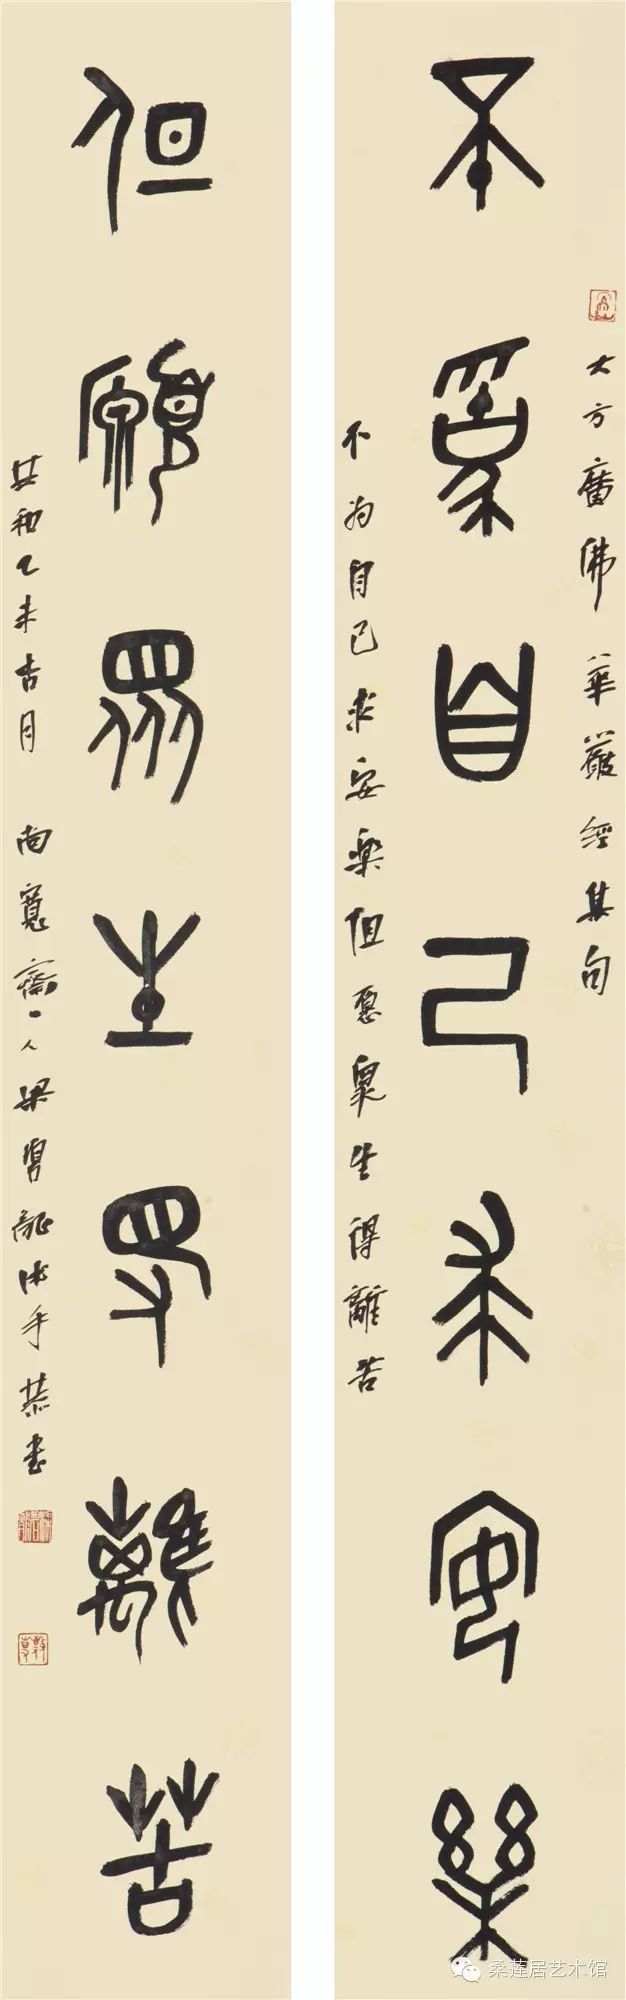 不為自己求安樂
大方廣佛華嚴經集句
不为自己求安樂但愿衆生得離苦
但願眾生得離苦
共和乙未吉月 尚寬齋一人梁習龍沐手恭書
桑莲居艺术馆